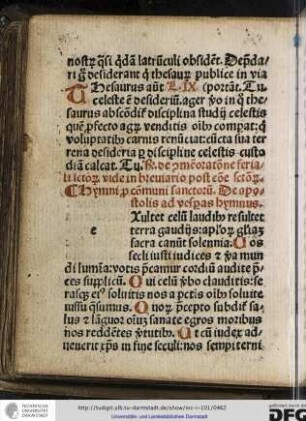 nostrȝ qsi qdā latrūculi obsidēt. Dep̄da
ri g̃ desiderant q̃ thesauꝝ publice in via
Thesaurus aūt L.IX. (portāt. Tu.
celeste ē desideriū. ager ꝟo in q̃ the
saurus abscōdiꝉ disciplina studij celestis
quē ꝓfecto agꝝ venditis oīb compat: q̃
voluptatib carnis renūciat: cūcta sua ter
rena desideria ꝑ discipline celestis custo
diā calcat. Tu. de cōmēoratōne feria
li
vide in breuiario post
Hymni ꝑ cōmuni sanctoꝝ. De apo
stolis ad vesꝑas hymnus.
Exultet celū laudib resultet
e
terra gaudijs: aploꝝ gl̄iaȝ
sacra canūt solennia. Vos
secli iusti iudices & ꝟa mun
di lumīa: votis p̄camur cordiū audite p̄
ces supplicū. Qui celū ꝟbo clauditis: se
rasqȝ eiꝰ soluitis nos a pctīs oīb soluite
iussū qsumus. Quoꝝ p̄cepto subdiꝉ sa
lus & lāguor oīuȝ sanate egros moribus
nos reddētes ꝟtutib. Ut cū iudex ad
uenerit xp̄s in fine seculi: nos sempiterni
TECHNISCHE
UNIVERSITÄT
DARMSTADT
http://tudigit.ulb.tu-darmstadt.de/show/inc-i-101/0462
Universitäts- und Landesbibliothek Darmstadt
DFG